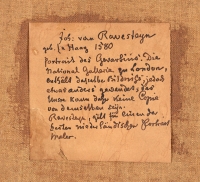 Joh. van Ravesteyn
geb. i. Haag 1580
Portrait des Gevartius. Die
National Gallerie zu London,
enthält dasselbe Bildniss, jedoch
etwas anders gewendet, das
man kann daher keine Copie
von demselben sein.
Ravesteyn, gilt für einen der
besten niederländischen Portrait
Maler.